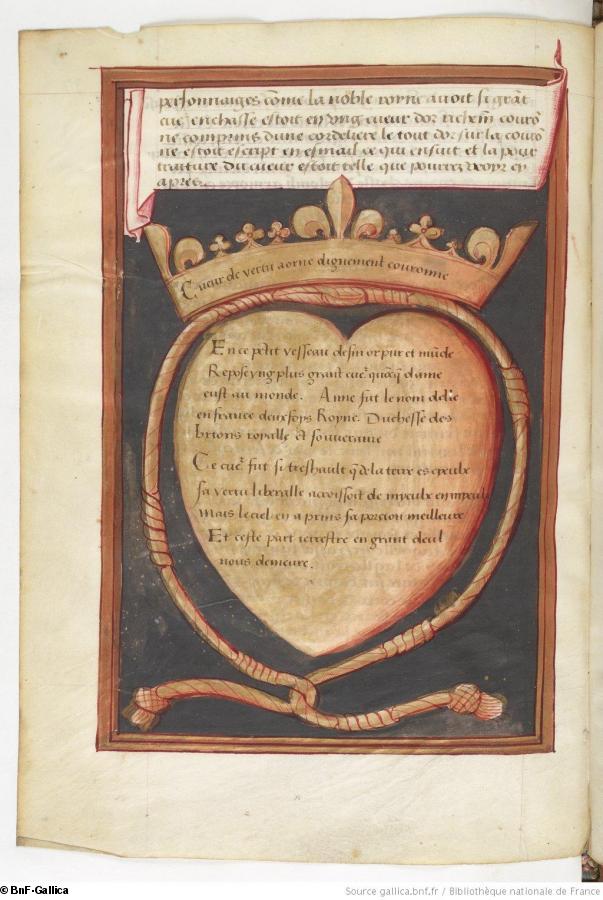 personnaiges cõme la noble royne auoit si grãt
cue enchasse estoit en vng cueur dor richem̃ couro
ne comprins dune cordeliere le tout dor sur la couro
ne estoit escript en esmail ce qui ensuit et la pour
traiture du cueur estoit telle que pourrez veoyr cy
apres
Cueur de vertu aorne dignement couronne
En ce petit vesseau de fin or pur et mũde
Repose vng plus grant cueˀ quõcq̃ dame
eust au monde. Anne fut le nom delle
en france deux foys Royne. Duchesse des
brtons royalle et souueraine
Ce cueˀ fut si tres hault q̃ de la terre es cyeulx
sa vertu liberalle accroissoit de myeulx en myeulx
Mais le ciel en a prins sa porcion meilleure
Et ceste part terrestre en grant deul
nous demeure.
© BnF-Gallica
Source gallica.bnf.fr / Bibliothèque nationale de France